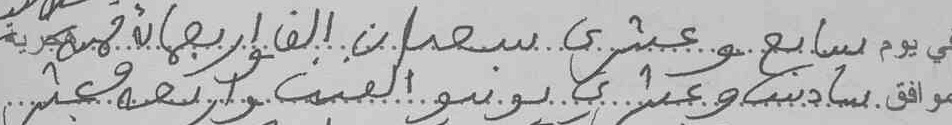 في يوم سابع وعشرى شعبان الفا واربعمائة هجرية
موافق سادس وعشرى يونيو الفين واربعه وعشر